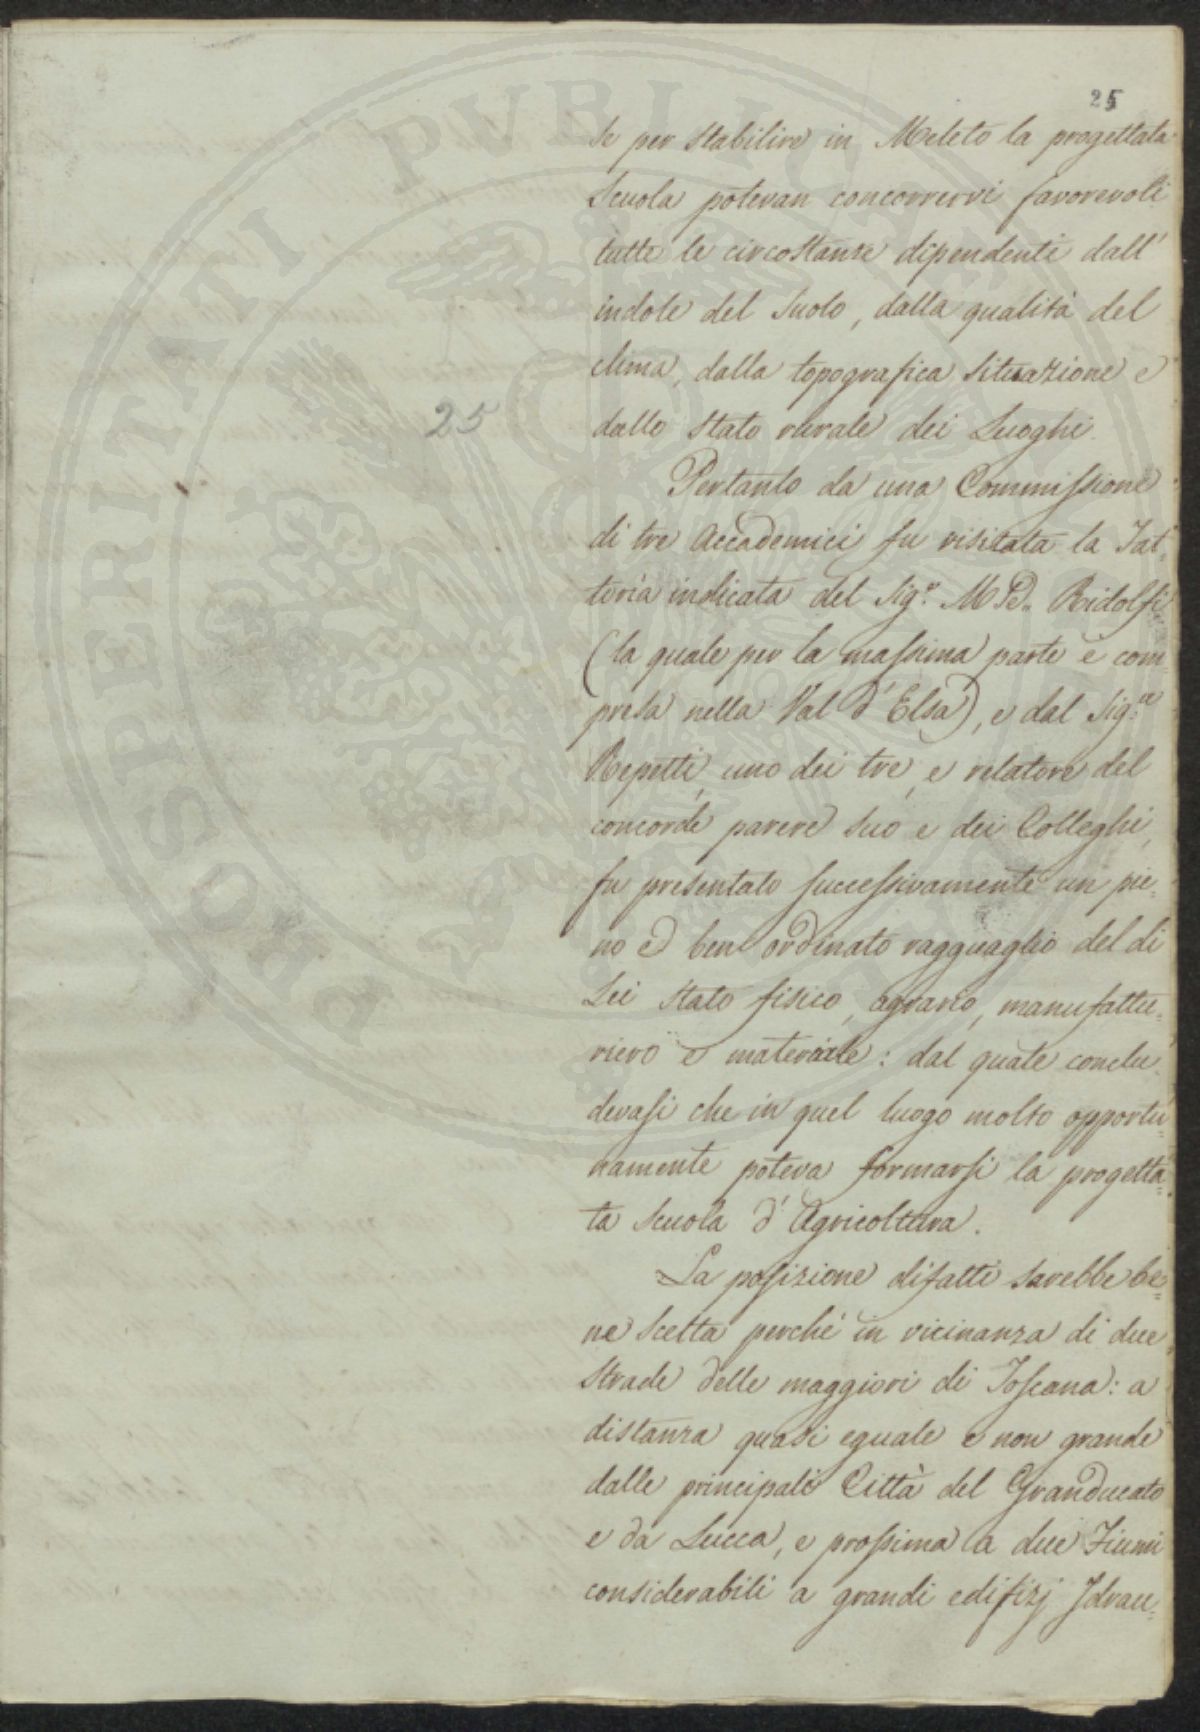 25
se per stabilire in Meleto la progettata
Scuola potevan concorrervi favorevoli
tutte le circostanze dipendenti dall'
indole del Suolo, dalla qualità del
clima, dalla topografica Situazione e
dallo Stato rurale dei Luoghi.
25
Pertanto da una Commissione
di tre Accademici fu visitata la Fat-
toria indicata del Sig.e M Se. Ridolfi
(la quale per la massima parte è com-
presa nella Val d'Elsa), e dal Sig.re
Repetti, uno dei tre, e relatore del
concorde parere suo e dei Colleghi,
fu presentato successivamente un pie-
no ed ben ordinato ragguaglio del di
Lei Stato fisico, agrario, manufattu-
riero e materiale: dal quale conclu-
devasi che in quel luogo molto opportu-
namente poteva formarsi la progetta-
ta Scuola d'Agricoltura.
La posizione difatti sarebbe be-
ne scelta perché in vicinanza di due
Strade delle maggiori di Toscana: a
distanza quasi eguale e non grande
dalle principali Città del Granducato
e da Lucca, e prossima a due Fiumi
considerabili a grandi edifizj Idrau-
PROSPERITATI PVBLICAE